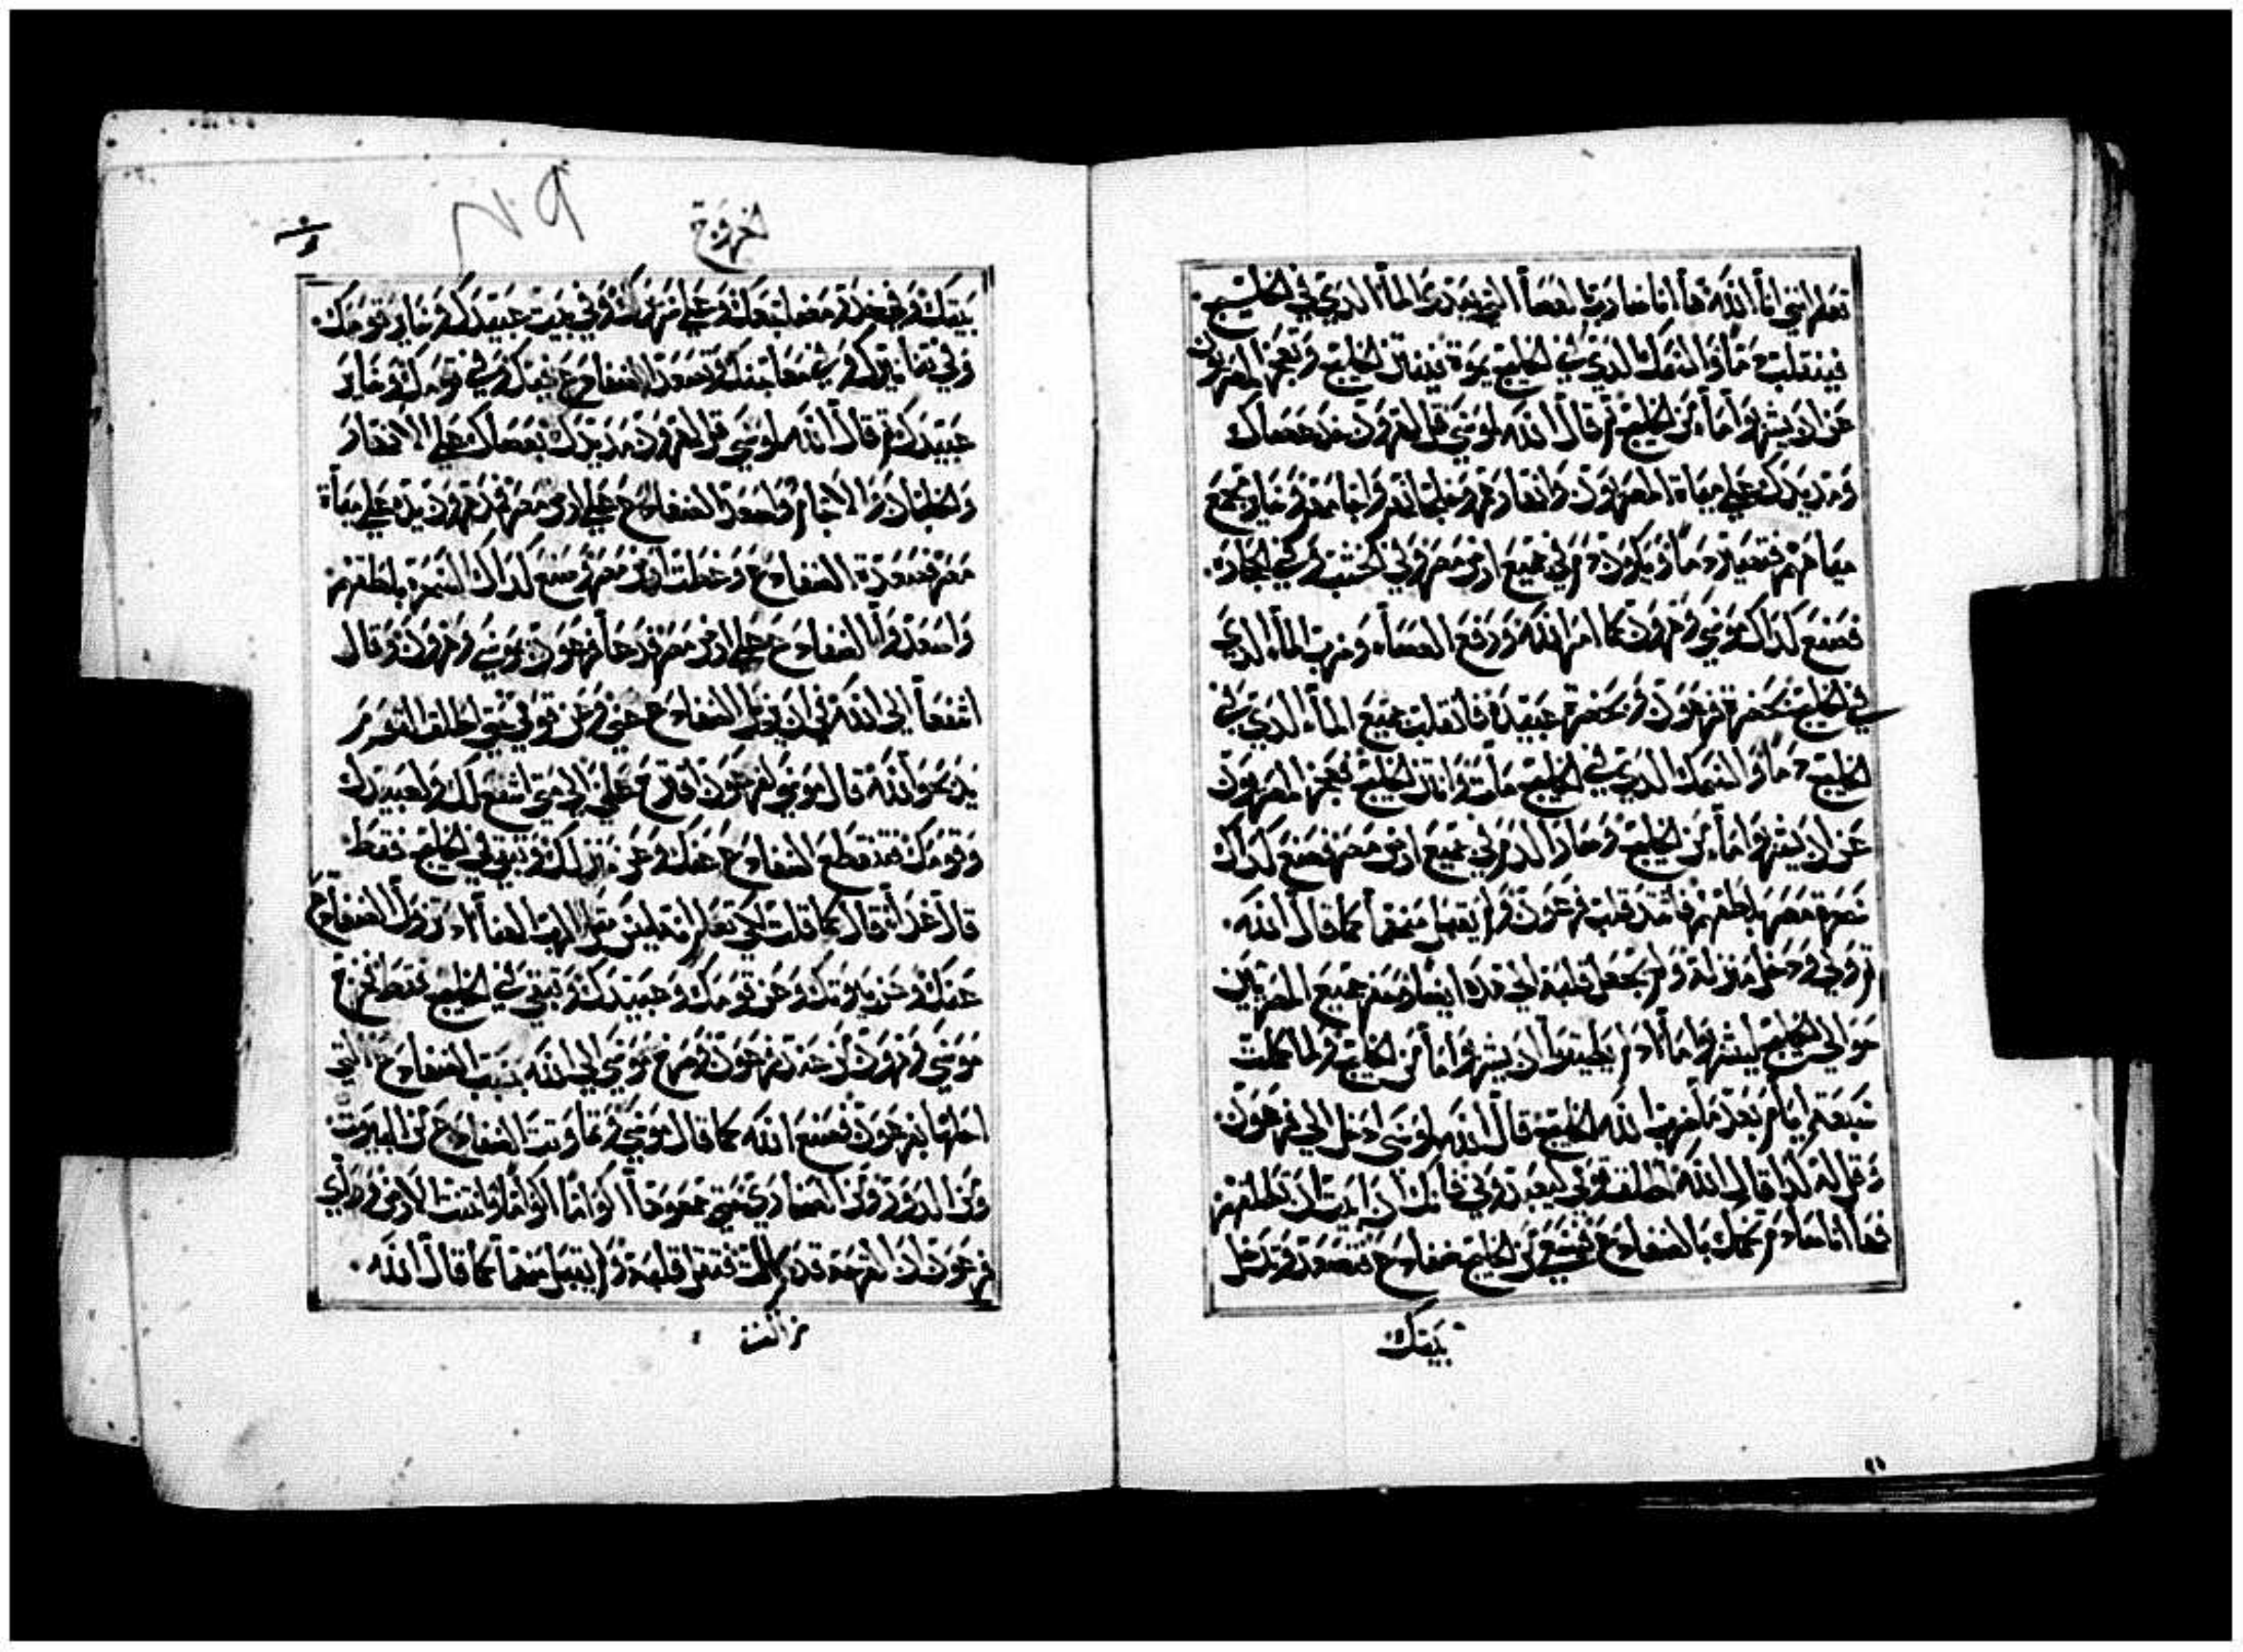 تعلم انني انا الله ها انا ضارب بالعصا التي بيدي علي الماء الذي في الخليج
فينقلب دماً والسمك الذي في الخليج يموت وينتن الخليج ويعجز المصريون
عن ان يشربوا ماء من الخليج ثم قال الله لموسي قل لهرون خذ عصاك
ومد يدك علي مياه المصريون وانهارهم وخلجانهم واجامهم وساير مجمع
مياههم فتصير دماً ويكون دم في جميع ارض مصر وفي الخشب وفي الحجارة
فصنع كذلك موسي وهرون كما امر الله ورفع العصاه وضرب الماء الذي
في الخليج بحضرة فرعون وبحضرة عبيده فانقلب جميع الماء الذي في
الخليج دماً والسمك الذي في الخليج مات وانتن الخليج فعجز المصريون
عن ان يشربوا ماء من الخليج وصار الدم في جميع ارض مصر فصنع كذلك
سحرة مصر بلطفهم فاشتد قلب فرعون ولم يقبل منهما كما قال الله
ثم ولي ودخل منزله ولم يجعل قلبه الي هذه ايضاً وحفر جميع المصريين
حوالي الخليج ليشربوا ماء اذ لم يطيقوا ان يشربوا ماء من الخليج ولما كملت
سبعة ايام بعد ما ضرب الله الخليج قال الله لموسي ادخل الي فرعون
وقل له كذا قال الله اطلق قومي ليعبدوني فانك ان ابيت ان تطلقهم
فها انا صادم تخمك بالضفادع فيسعي من الخليج ضفادع فتصعد وتدخل
بيتك
الخروج
بيتك وفي خدر مضجعك وعلي سريرك وفي بيت عبيدك وساير قومك
وفي تنانيرك وفي معاجنك وتصعد الضفادع فيك وفي قومك وساير
عبيدك ثم قال الله لموسي قل لهرون مد يدك بعصاك علي الانهار
والخلجان والاجام واصعد الضفادع علي ارض مصر فمد هرون يده علي مياة
مصر فصعدة الضفادع وغطت ارض مصر وصنع كذلك السحرة بلطفهم
واصعدوا الضفادع علي ارض مصر فدعا فرعون بموسي وهرون وقال
اشفعا الي الله في ان يزيل الضفادع عني وعن قومي حتي اطلق القوم
يذبحوا لله قال موسي لفرعون اقترح علي الي متي اشفع لك ولعبيدك
وقومك فتنقطع الضفادع عنك وعن منزلك وتبقي في الخليج فقط
قال غداً قال كما قلت لكي تعلم انه ليس مثل الرب الهنا ا وتزول الضفادع
عنك وعن بيوتك وعن قومك وعبيدك وتبقي في الخليج فقط فخرج
موسي وهرون من عند فرعون وصرخ موسي الي الله بسبب الضفادع التي
احلها بفرعون فصنع الله كما قال موسي وتماوتت الضفادع من البيوت
ومن الدور ومن الصحاري فجمعوها اكواماً اكواماً وانتنت الارض وراي
فرعون ان الفرجة قد كانت فثقل قلبه ولم يقبل منهما كما قال الله